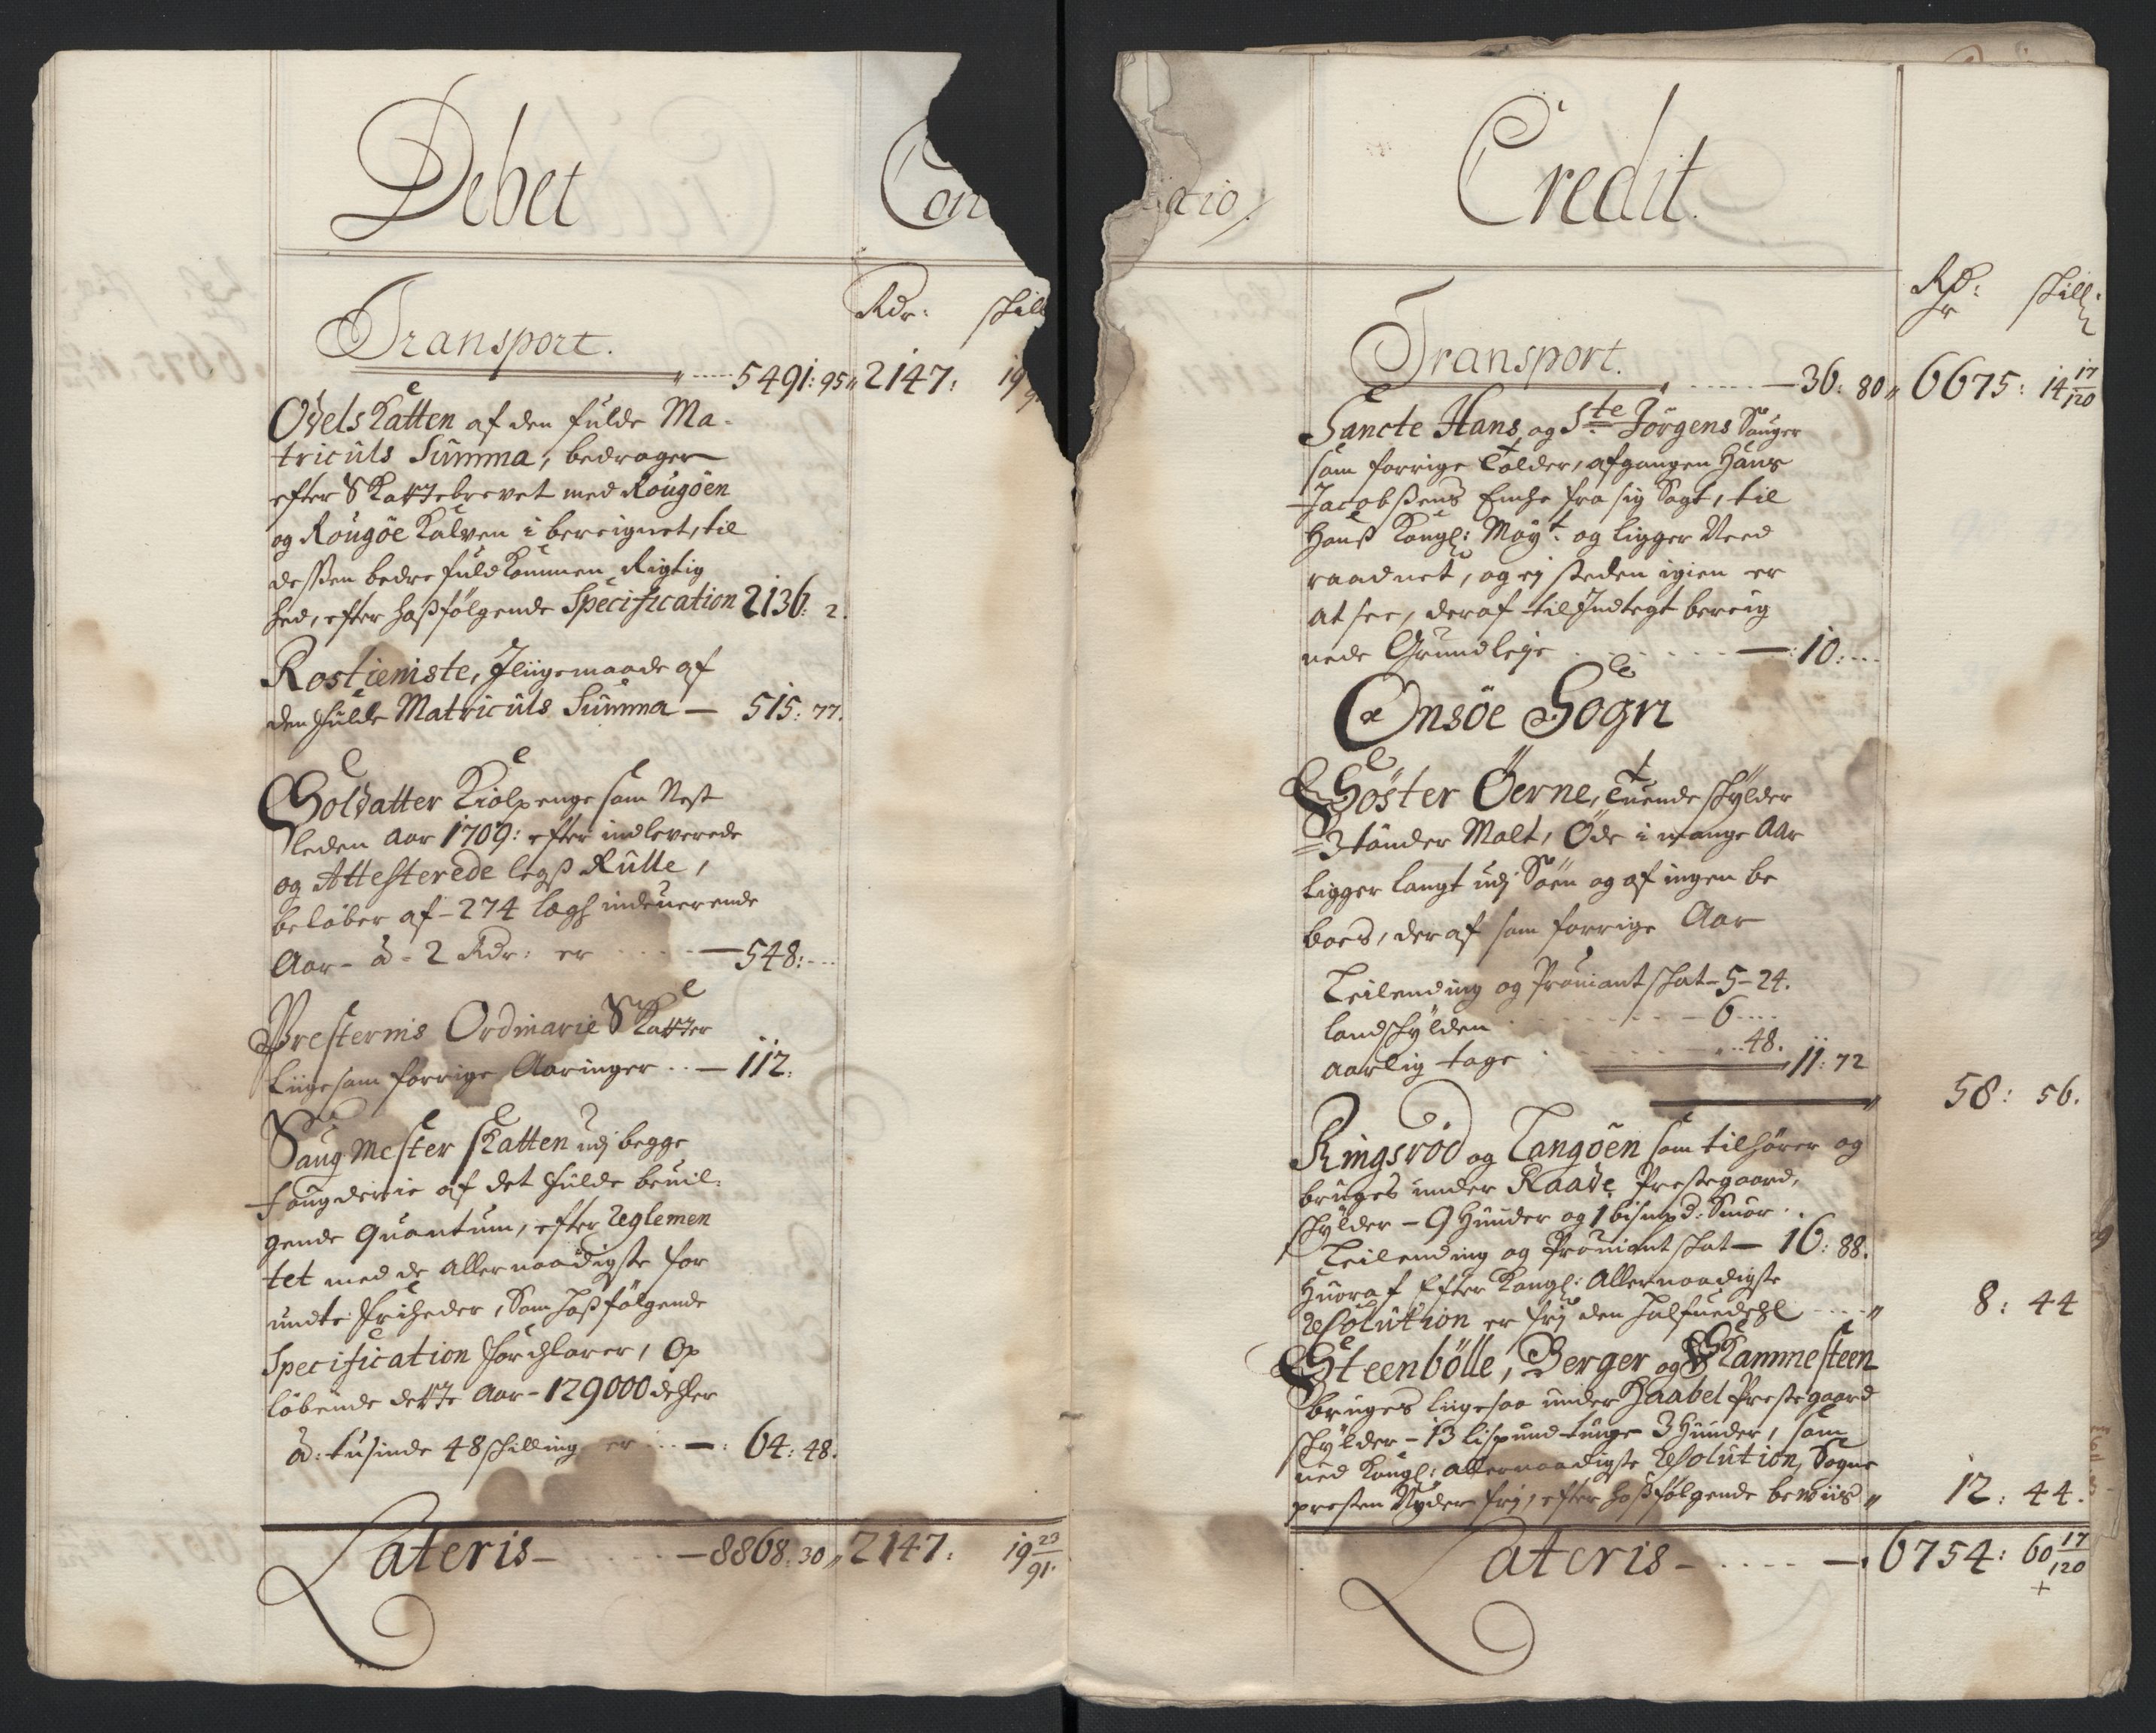 Debet
Con
Rdr: skill
Transport.
5491: 95 2147: 19
Odelskatten af den fulde Ma-
triculs Summa, bedrager
efter Skattebrevet med Rougöen
og Rougöe Kalven i bereignet, til
dessen bedre fuldkommen Rigtig
hed, efter hossfölgende Specification 2136: 2.
Rostieniste, Jliigemaade af
den fulde Matriculs Summa — 515: 77.
Soldatter Kiolpenge som Nest
leden Aar 1709: efter indleverede
og Attesterede legss Rulle,
beløber af - 274 lægh indeuerende
Aar - à - 2 Rdr: er — 548: -
Presternis Ordinarie Skatter
Liigesom forrige Aaringer — 112:
Saug Mester skatten udj begge
fougderie af det fulde bevil-
gende Quantum, efter Reglemen
tet med de allernaadigste for
undte friheder, som hossfölgende
Specification forklarer, Op
löbende dette Aar - 129000 dehler
à: tusinde 48 skilling er — : 64: 48.
Lateris — 8868: 30 2147: 19 23/91.
atio.
Credit.
Rdr: skill:
Transport. — 36: 80 6675: 14 17/120
Sancte Hans og Ste Jörgens Sauger
som forrige Tolder, afgangen Hans
Jacobssens Enche fra sig Sagt, til
Hanss Kongl: Mayt: og ligger Need
raadnet, og ej steden igien er
at see, deraf til Indtegt bereig
nede Grundleje — : 10: -
Onsöe Sogn
Söster Öerne, Tuende skÿlder
3 tönder Malt, Öde i mange Aar
ligger langt udj Söen og af ingen be
boes, deraf som forrige Aar
Leilending og Proviant skat - 5 - 24.
landskÿlden — 6 -
aarlig tage 48. 11: 72
58: 56.
Ringsröd og Tangöen som tilhörer og
bruges under Raade Prestegaard,
skÿlder - 9 Hunder og 1 bismpd: Smör.
Leilending og Proviant skat — 16: 88.
Huoraf Efter Kongl: Allernaadigste
Resolution er frj den halfuedehl 8: 44
Steenbölle, Berger og Skammesteen
bruges liigesaa under Haabel Prestegaard
skÿlder - 13 lispund tunge 3 Hunder, som
ved Kongl: allernaadigste Resolution, Sogne
presten Nyder frj, efter hossfölgende beviis 12: 44.
Lateris — 6754: 60 17/120
+